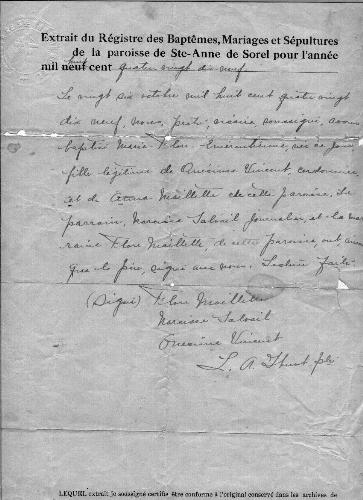 Extrait du Régistre des Baptêmes, Mariages et Sépultures
de la paroisse de Ste-Anne de Sorel pour l'année
mil neuf cent quatre vingt dix neuf
huit
Le vingt six octobre mil huit cent quatre vingt
dix neuf, nous, prêtre, vicaire soussigné, avons
baptisé Marie Flore Émérentienne, née ce jour
fille légitime de Onésime Vincent, cordonnier
et de Maillette de cette paroisse. Le
parrain, Narcisse Salvail journalier, et la mar
raine Flore Maillette, de cette paroisse, ont ainsi
que le père, signé avec nous. Lecture faite
(Signé) Flore Maillette
Narcisse Salvail
Onésime Vincent
L. A. ptre
LEQUEL extrait je soussigné certifie être conforme à l'original conservé dans les archives de